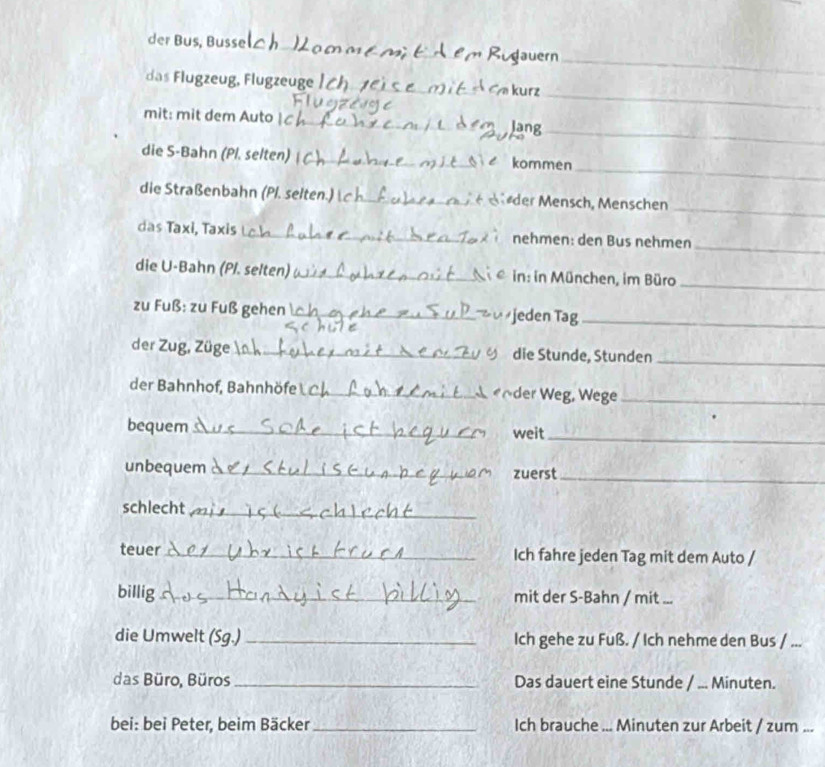 der Bus, Busse Ich komme mit dem Bus dauern
das Flugzeug, Flugzeuge Ich reise mit dem kurz
Flugzeuge
mit: mit dem Auto ich fahre mit dem Auto lang
die S-Bahn (Pl. selten) Ich fahre mit die kommen
die Straßenbahn (Pl. selten.) Ich mit die der Mensch, Menschen
das Taxi, Taxis Ich mit Taxi nehmen: den Bus nehmen
die U-Bahn (Pl. selten) wir fahren mit die in: in München, im Büro
zu Fuß: zu Fuß gehen Ich gehe zu jeden Tag
schule
der Zug, Züge Ich mit den zug die Stunde, Stunden
der Bahnhof, Bahnhöfe Ich mit der Weg, Wege
bequem das ist bequem weit
unbequem der Stul ist unbequem zuerst
schlecht mir ist schlecht
teuer der Uhr ist Ich fahre jeden Tag mit dem Auto /
billig das Handy ist billig mit der S-Bahn / mit ...
die Umwelt (Sg.) Ich gehe zu Fuß. / Ich nehme den Bus / ...
das Büro, Büros Das dauert eine Stunde / ... Minuten.
bei: bei Peter, beim Bäcker Ich brauche ... Minuten zur Arbeit / zum ...